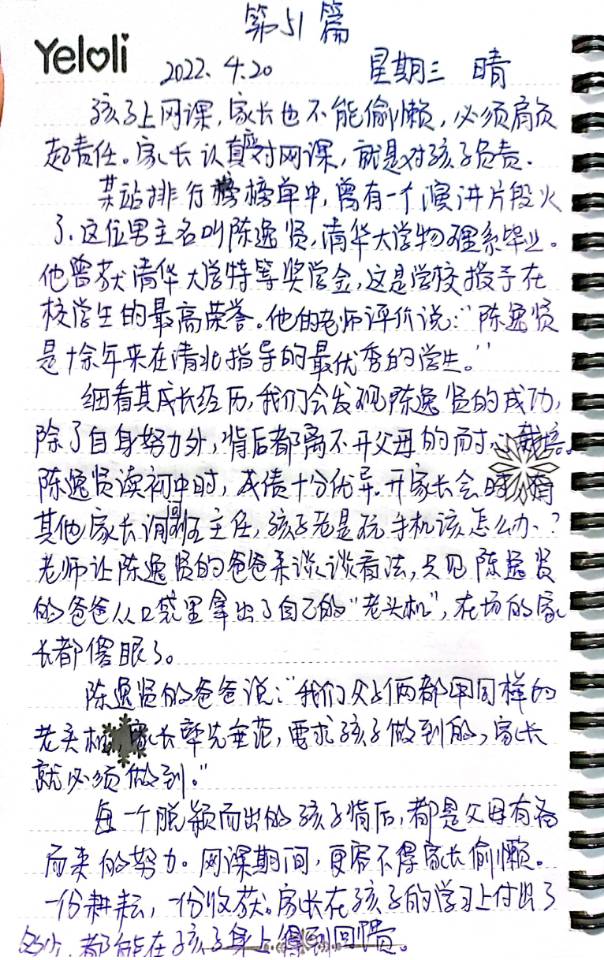 第51篇
Yeloli
2022.4.20 星期三 晴
孩子上网课,家长也不能偷懒,必须肩负
起责任。家长认真对网课,就是对孩子负责.
某站排行榜榜单中,曾有一个演讲片段火
了.这位男主名叫陈逸贤,清华大学物理系毕业。
他曾获清华大学特等奖学金,这是学校授予在
校学生的最高荣誉。他的老师评价说:“陈逸贤
是十余年来在清北指导的最优秀的学生。”
细看其成长经历,我们会发现陈逸贤的成功,
除了自身努力外,背后都离不开父母的耐心栽培。
陈逸贤读初中时,成绩十分优异.开家长会时,有
其他家长问班主任,孩子老是玩手机该怎么办、?
老师让陈逸贤的爸爸来谈谈看法,只见陈逸贤
的爸爸从口袋里拿出了自己的“老头机”,在场的家
长都傻眼了。
陈逸贤的爸爸说:“我们父子俩都用同样的
老头机,家长率先垂范,要求孩子做到的,家长
就必须做到.”
每一个脱颖而出的孩子背后,都是父母有备
而来的努力。网课期间,更容不得家长偷懒。
一份耕耘,一份收获。家长在孩子的学习上付出了
多少,都能在孩子身上得到回馈。